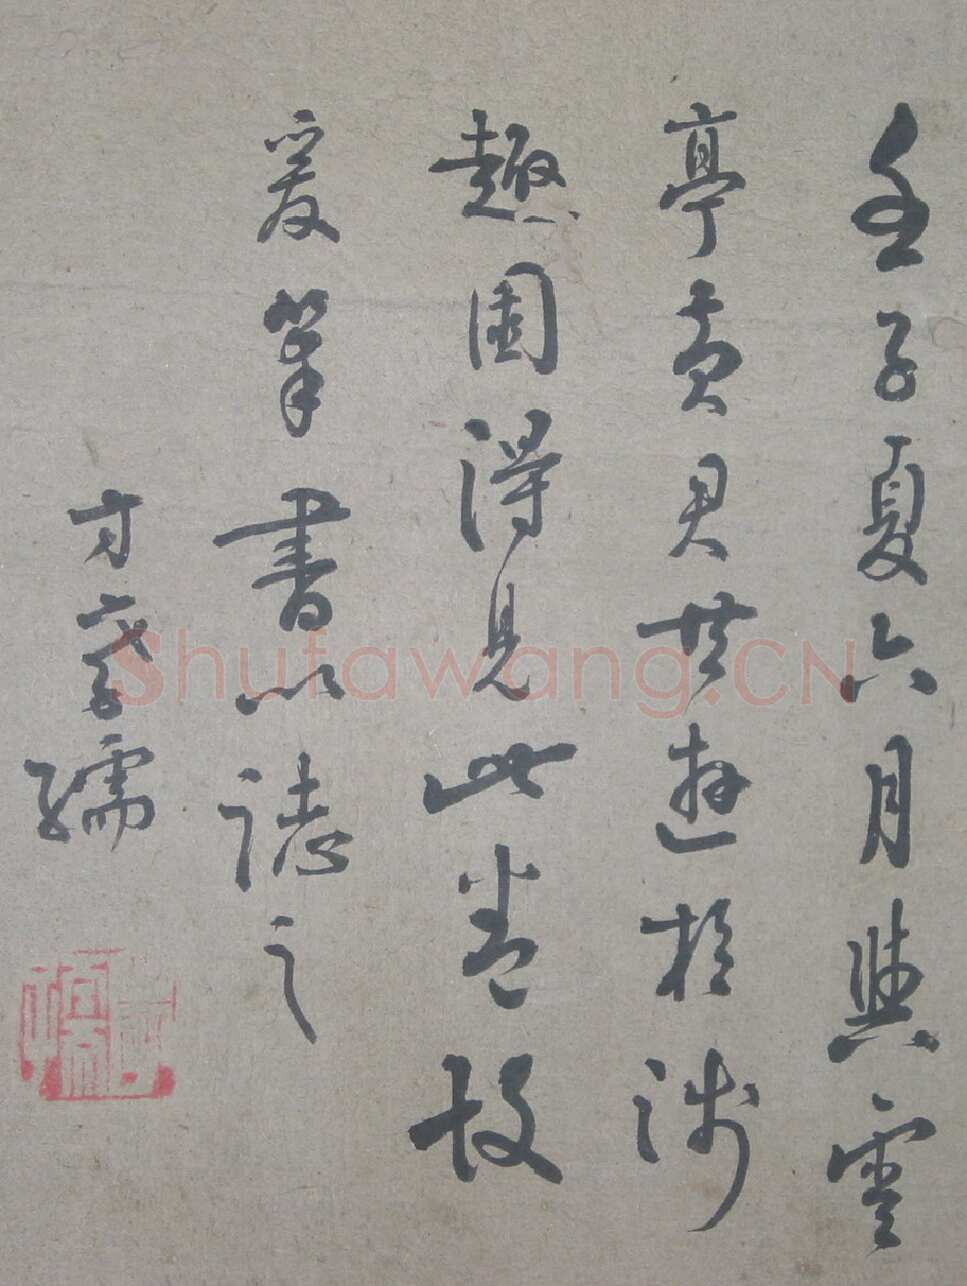 壬子夏六月與雲
亭君共遊於涉
趣園得見此卷故
爰筆書以誌之
方孝孺
Shufawang.CN